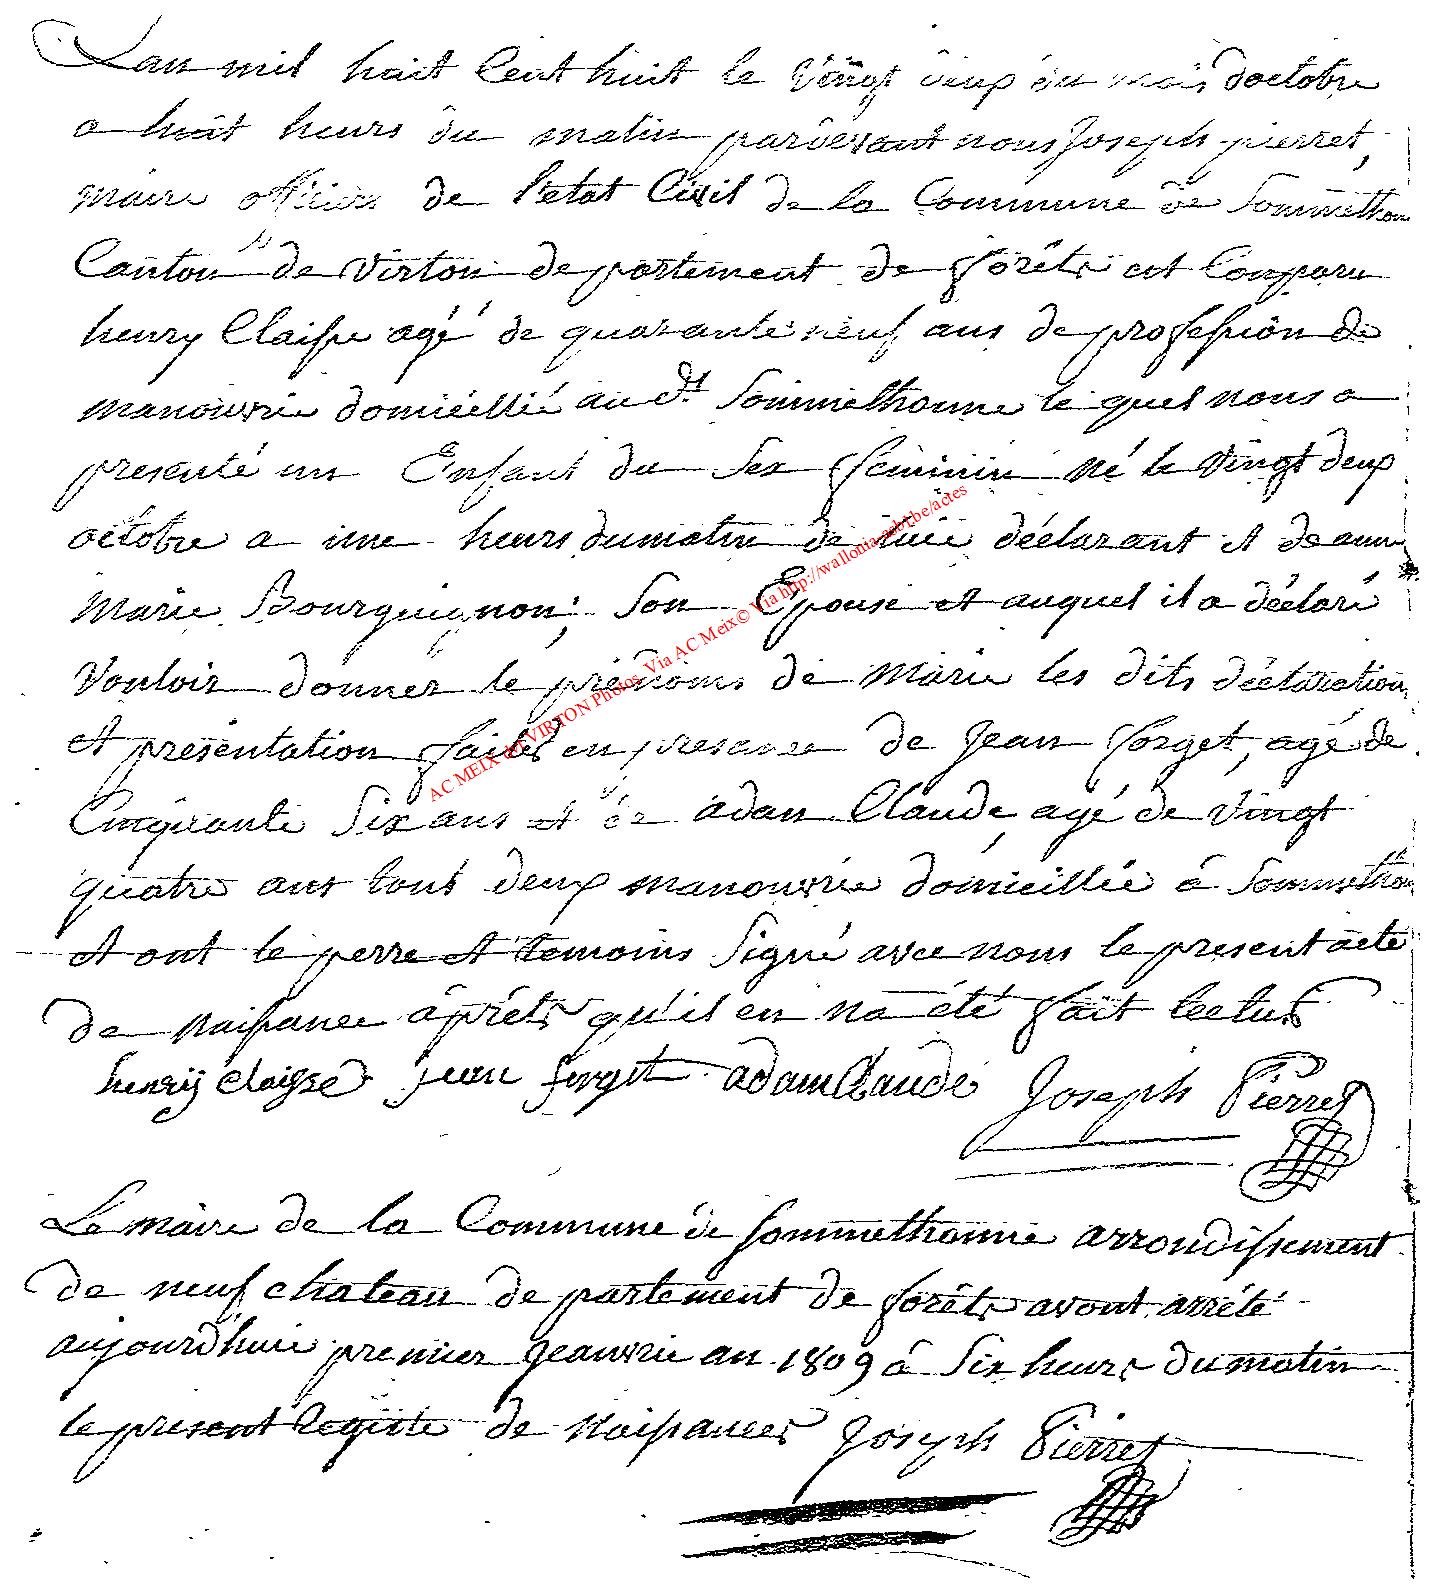 Lan mil huit Cent huit le Vingt deux du mois doctobre
a huit heurs du matin pardevant nous Joseph pierret,
maire officiers de l'etat Civil de la Commune de Sommethon
Canton de Virton departement de forêts est Comparu
henry Claisse agé de quarante neuf ans de profession de
manouvrie domicillié au dt Sommethonne le quel nous a
presenté un Enfant du Sex feminin né le Vingt deux
octobre a une heurs du matin de luii déclarant et de anne
Marie Bourguignon, Son Epouse et auquel il a déclaré
Vouloir donner le prénoms de Marie les dits déclaration
et présentation faites en presance de Jean forget, agé de
Cinquante Six ans et de adan Claude, agé de Vingt
quatre ans tous deux manouvrie domicillié à Sommethon
et ont le perre et temoins Signé avec nous le present acte
de Naissance áprêts qu'il en na été fait lectur
henrij claisse jean forget adam Claude Joseph Pierret
Le maire de la Commune de Sommethonne arrondissement
de neufchateau departement de forêts avont arrêté
aujourdhuie premier Jeanvrie an 1809 à Six heurs du matin
le present Registe de Naissances Joseph Pierret
AC MEIX-dt-VIRTON Photos. Via AC Meix© Via http://wallonia.asbl.be/actes